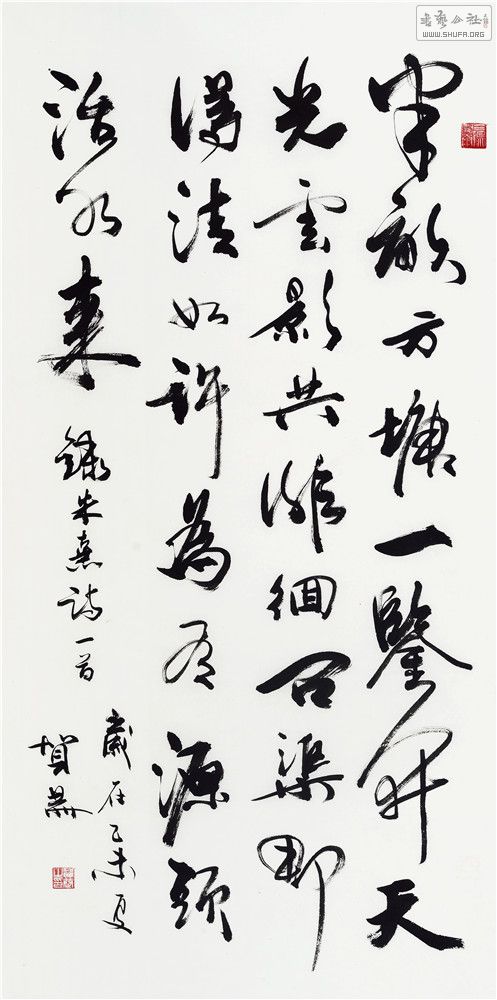 半畝方塘一鑒开天
光雲影共徘徊問渠那
得清如許為有源頭
活水來
錄朱熹詩一首
歲在乙未夏
书艺公社
WWW.SHUFA.ORG